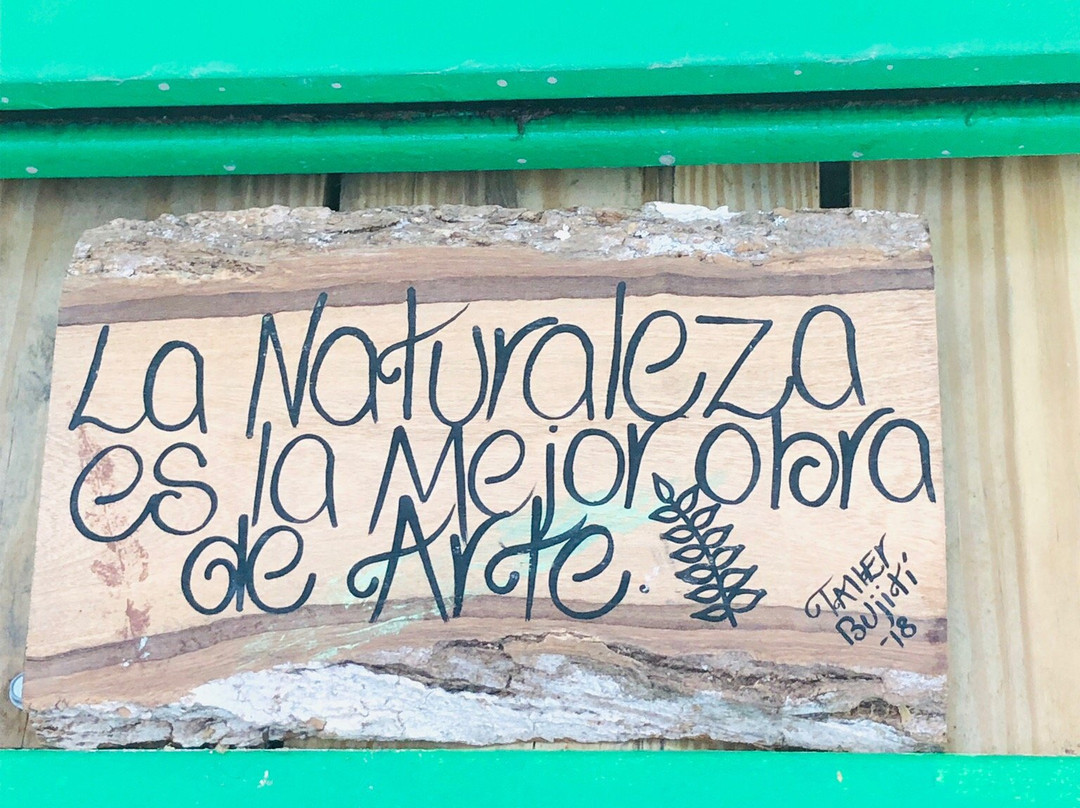 La Naturaleza
es la Mejor obra
de Arte.
Taller
Bujiti
-18